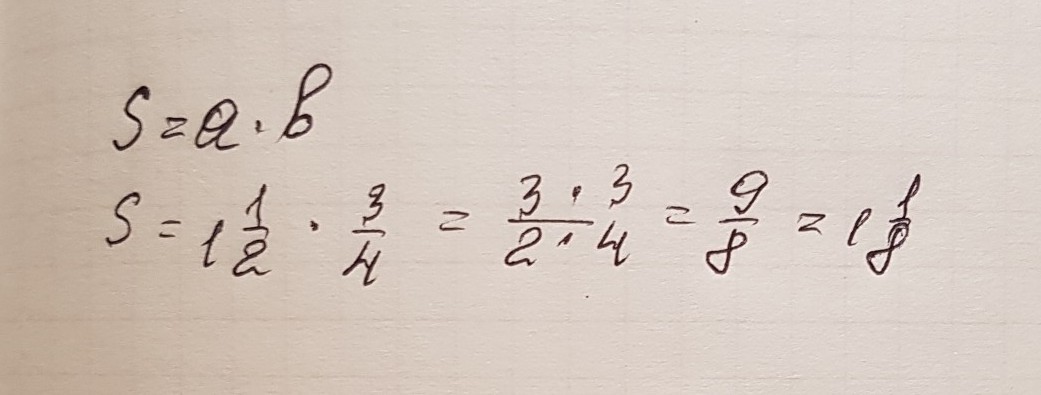 S = a · b
S = 1 1/2 · 3/4 = 3 · 3 / 2 · 4 = 9/8 = 1 1/8